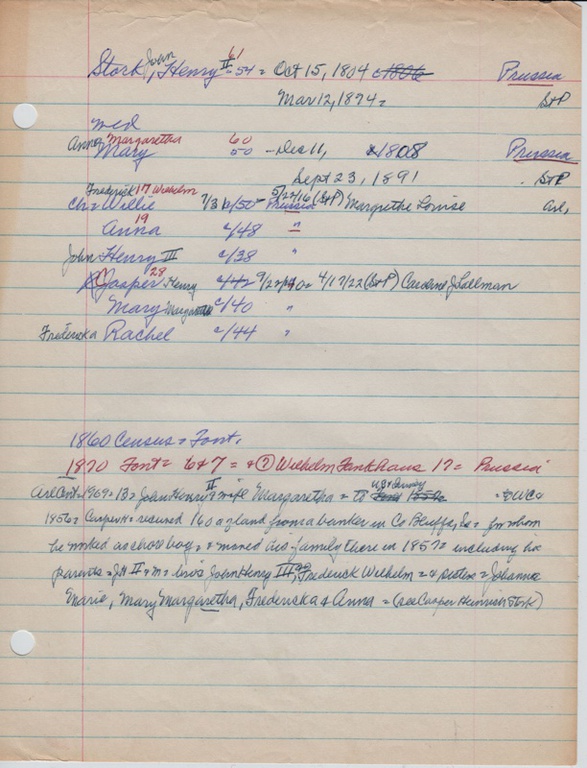 Stork, John Henry II = 54 61 = Oct 15, 1804 c1806 Prussia
Mar 12, 1894 = B+P
med
Anna Margaretha Mary 60 50 - Dec 11, 1808 Prussia
Sept 23, 1891 B+P
Ch = Frederick Willie 17 Wilhelm 7/3 /50 = Prussia 5/24/16 (B+P) Margrethe Louise
Anna 19 c/48 "
John Henry III c/38
Casper 28 Henry c/42 9/22/40 = 4/17/22 (B+P) Caroline J Lallman
Mary Margaretha c/40 "
Frederiska Rachel c/44 "
1860 Census = Font.
1870 Font = 6+7 = + ⑦ Wilhelm Fankhaus 17 = Prussia
1969 = 13 = John Henry II + wife Margaretha =
1856 = Casper H = secured 160 a land from a banker in Co Bluffs, Ia = for whom
he worked as chore boy = + moved his family there in 1857 = including his
parents = JH II + m = bro's John Henry III, Frederick Wilhelm = + sisters = Johanna
Marie, Mary Margaretha, Frederiska + Anna = (see Casper Heinrich Stork)